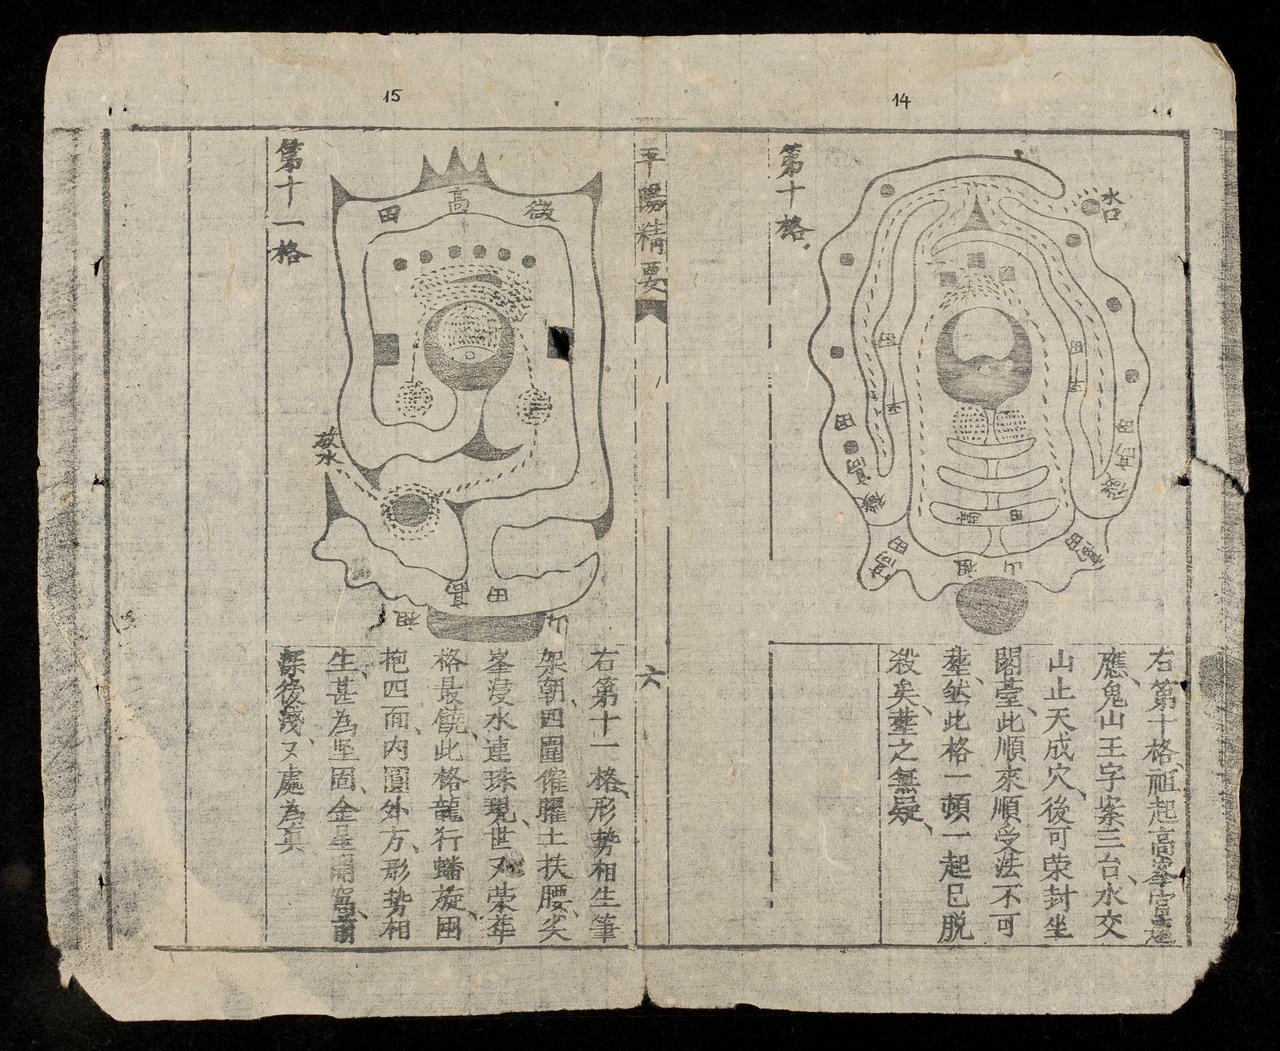 14
第十格
水口
平
田
田
平
田
高
微
田
高
微
高田
高田
田
高
祖
山
右第十格祖起高峯
應鬼山王字案三台水交
山止天成穴後可荣封坐
閣臺此順來順受法不可
塟然此格一頓一起已脱
殺矣塟之無疑
平陽精要
六
15
第十一格
微
高
田
放水
高
田
祖
右第十一格形勢相生筆
架朝四圍催曜土扶腰尖
峯浸水連珠現世又荣華
格最饒此格龍行蟠旋兩
抱四面内圓外方形勢相
生甚為坚固金星開窩前
深後淺又處為真